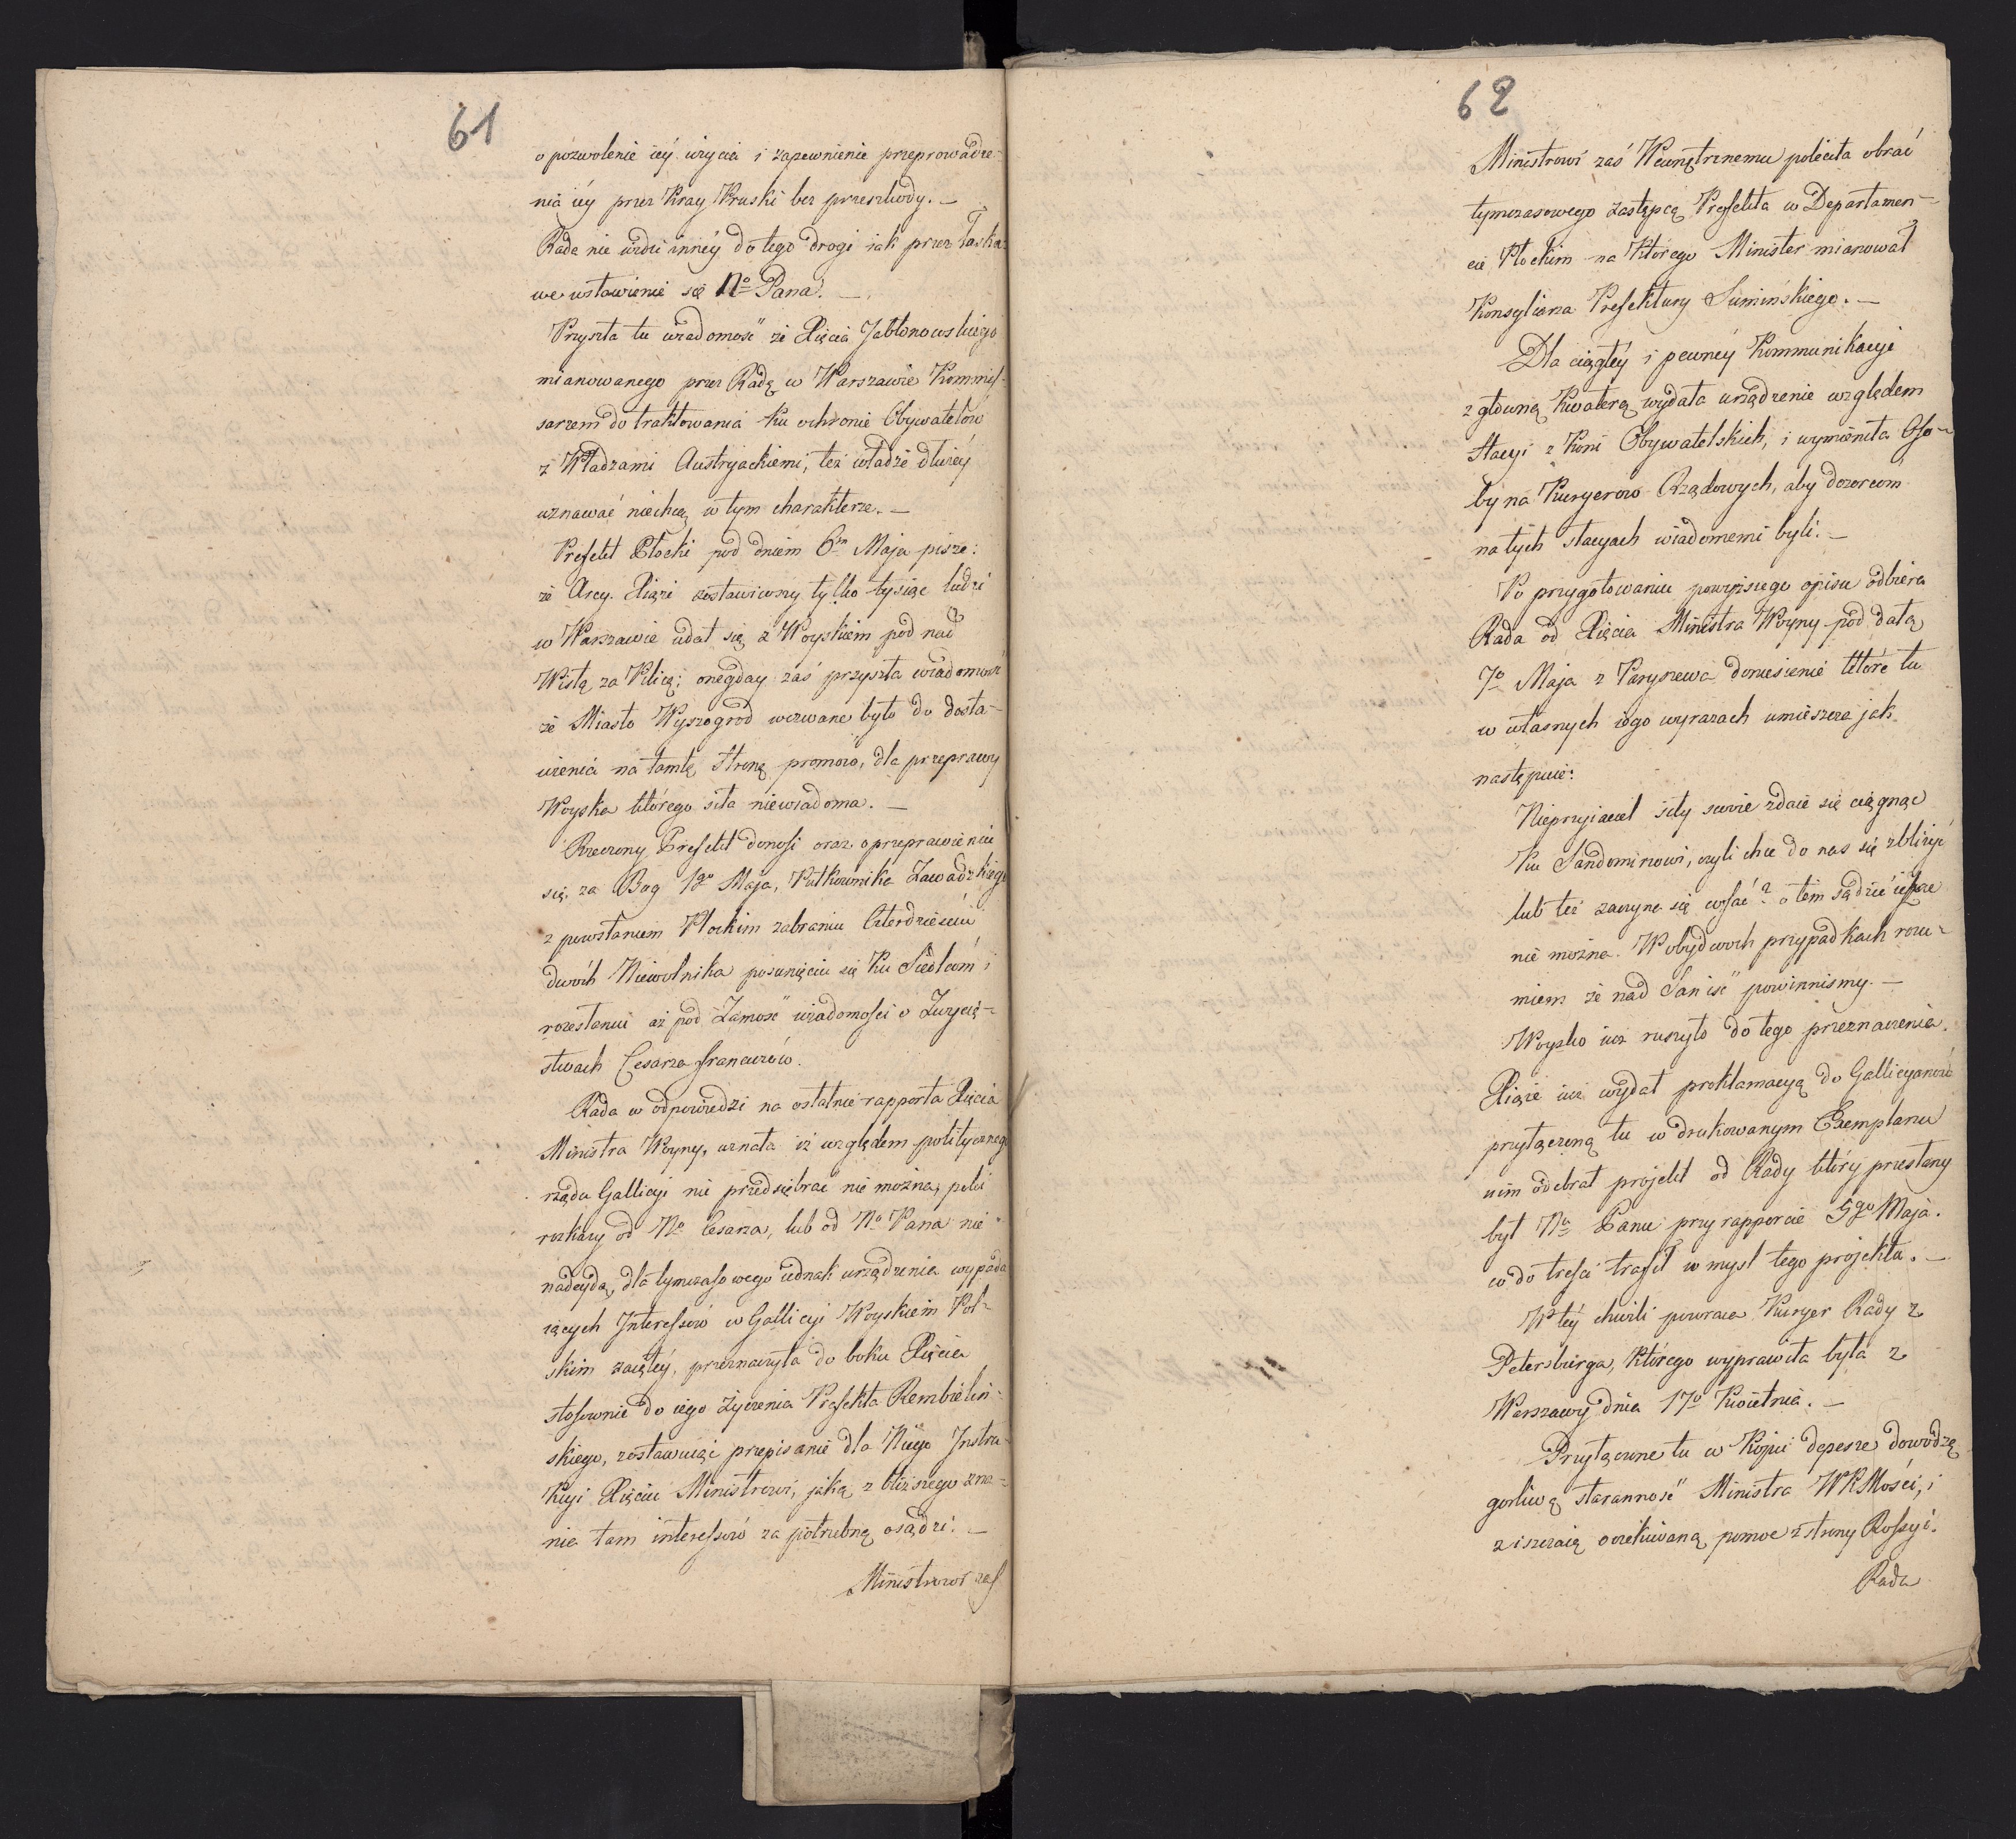 61
o pozwolenie iéy użycia i zapewnienie przeprowadze-
nia iéy przez Kray Pruski bez przeszkody. —
Rada nie widzi innéy do tego drogi iak przez łaska-
we wstawienie się No Pana. —
Przyszła tu wiadomość że Xięcia Jabłonowskiego
mianowanego przez Radę w Warszawie Kommis-
sarzem do traktowania ku ochronie Obywatelów
z Władzami Austryackiemi, też władze dłużéy
uznawać niechcą w tym charakterze. —
Prefekt Płocki pod dniem 6m Maja pisze:
że Arcy. Xiąże zostawiwszy tylko tysiąc ludzi
w Warszawie udał się z Woyskiem pod nad
Wisłą za Pilicę; onegday zaś przyszła wiadomość
że Miasto Wyszogrod wezwane było do dosta-
wienia na tamtę stronę promow, dla przeprawy
Woyska którego siła niewiadoma. —
Rzeczony Prefekt donosi oraz o przeprawieniu
się za Bug 1go Maja, Pułkownika Zawadzkiego
z powstaniem Płockim zabraniu Czterdzieściu
dwóch Niewolnika posunięciu się ku Siedlcom i
rozesłaniu aż pod Zamość wiadomości o Zwycię-
stwach Cesarza francuzów.
Rada w odpowiedzi na ostatnie rapporta Xięcia
Ministra Woyny, uznała iż względem politycznego
rządu Gallicyi nic przedsiębrać nie można, póki
rozkazy od No Cesarza, lub od No Pana nie
nadeydą, dla tymczasowego iednak urządzenia wypada
iących Interessów w Gallicyi Woyskiem Pol-
skim zaiętéy, przeznaczyła do boku Xięcia
stosownie do iego życzenia Prefekta Rembieliń-
skiego, zostawuiąc przepisanie dla Niego Instru-
kcyi Xięciu Ministrowi, jaką z bliższego zna-
nia tam interessów za potrzebną osądzi. —
Ministrowi zaś
62
Ministrowi zaś Wewnętrznemu poleciła obrać
tymczasowego zastępcę Prefekta w Departamen-
cie Płockim na którego Minister mianował
Konsyliarza Prefektury Sumińskiego. —
Dla ciągłéy i pewnéy Kommunikacyi
z główną Kwaterą wydała urządzenie względem
stacyi z Koni Obywatelskich, i wymieniła Oso-
by na Kuryerow Rządowych, aby dozorcom
na tych stacyach wiadomemi byli. —
Po przygotowaniu powyższego opisu odbiera
Rada od Xięcia Ministra Woyny pod datą
7o Maja z Paryszewa doniesienie które tu
w własnych iego wyrazach umieszcza jak
następuie:
Nieprzyiaciel siły swoie zdaie się ciągnąć
ku Sandomirowi, czyli chce do nas się zbliżyć
lub też zaczyna się cofać? o tém sądzić ieszcze
nie można. W obydwoch przypadkach rozu-
miem że nad San iść powinnismy. —
Woysko iuż ruszyło do tego przeznaczenia.
Xiąże iuż wydał proklamacyą do Gallicyanow
przyłączoną tu w drukowanym Exemplarzu
nim odebrał projekt od Rady który przesłany
był No Panu przy rapporcie 5go Maja.
co do tresci trafił w mysl tego projektu. —
W téy chwili powraca Kuryer Rady z
Petersburga, którego wyprawiła była z
Warszawy dnia 17o Kwietnia. —
Przyłączone tu w Kopii depesze dowodzą
gorliwą staranność Ministra WKMości, i
ziszczaią oczekiwaną pomoc z strony Rossyi.
Rada